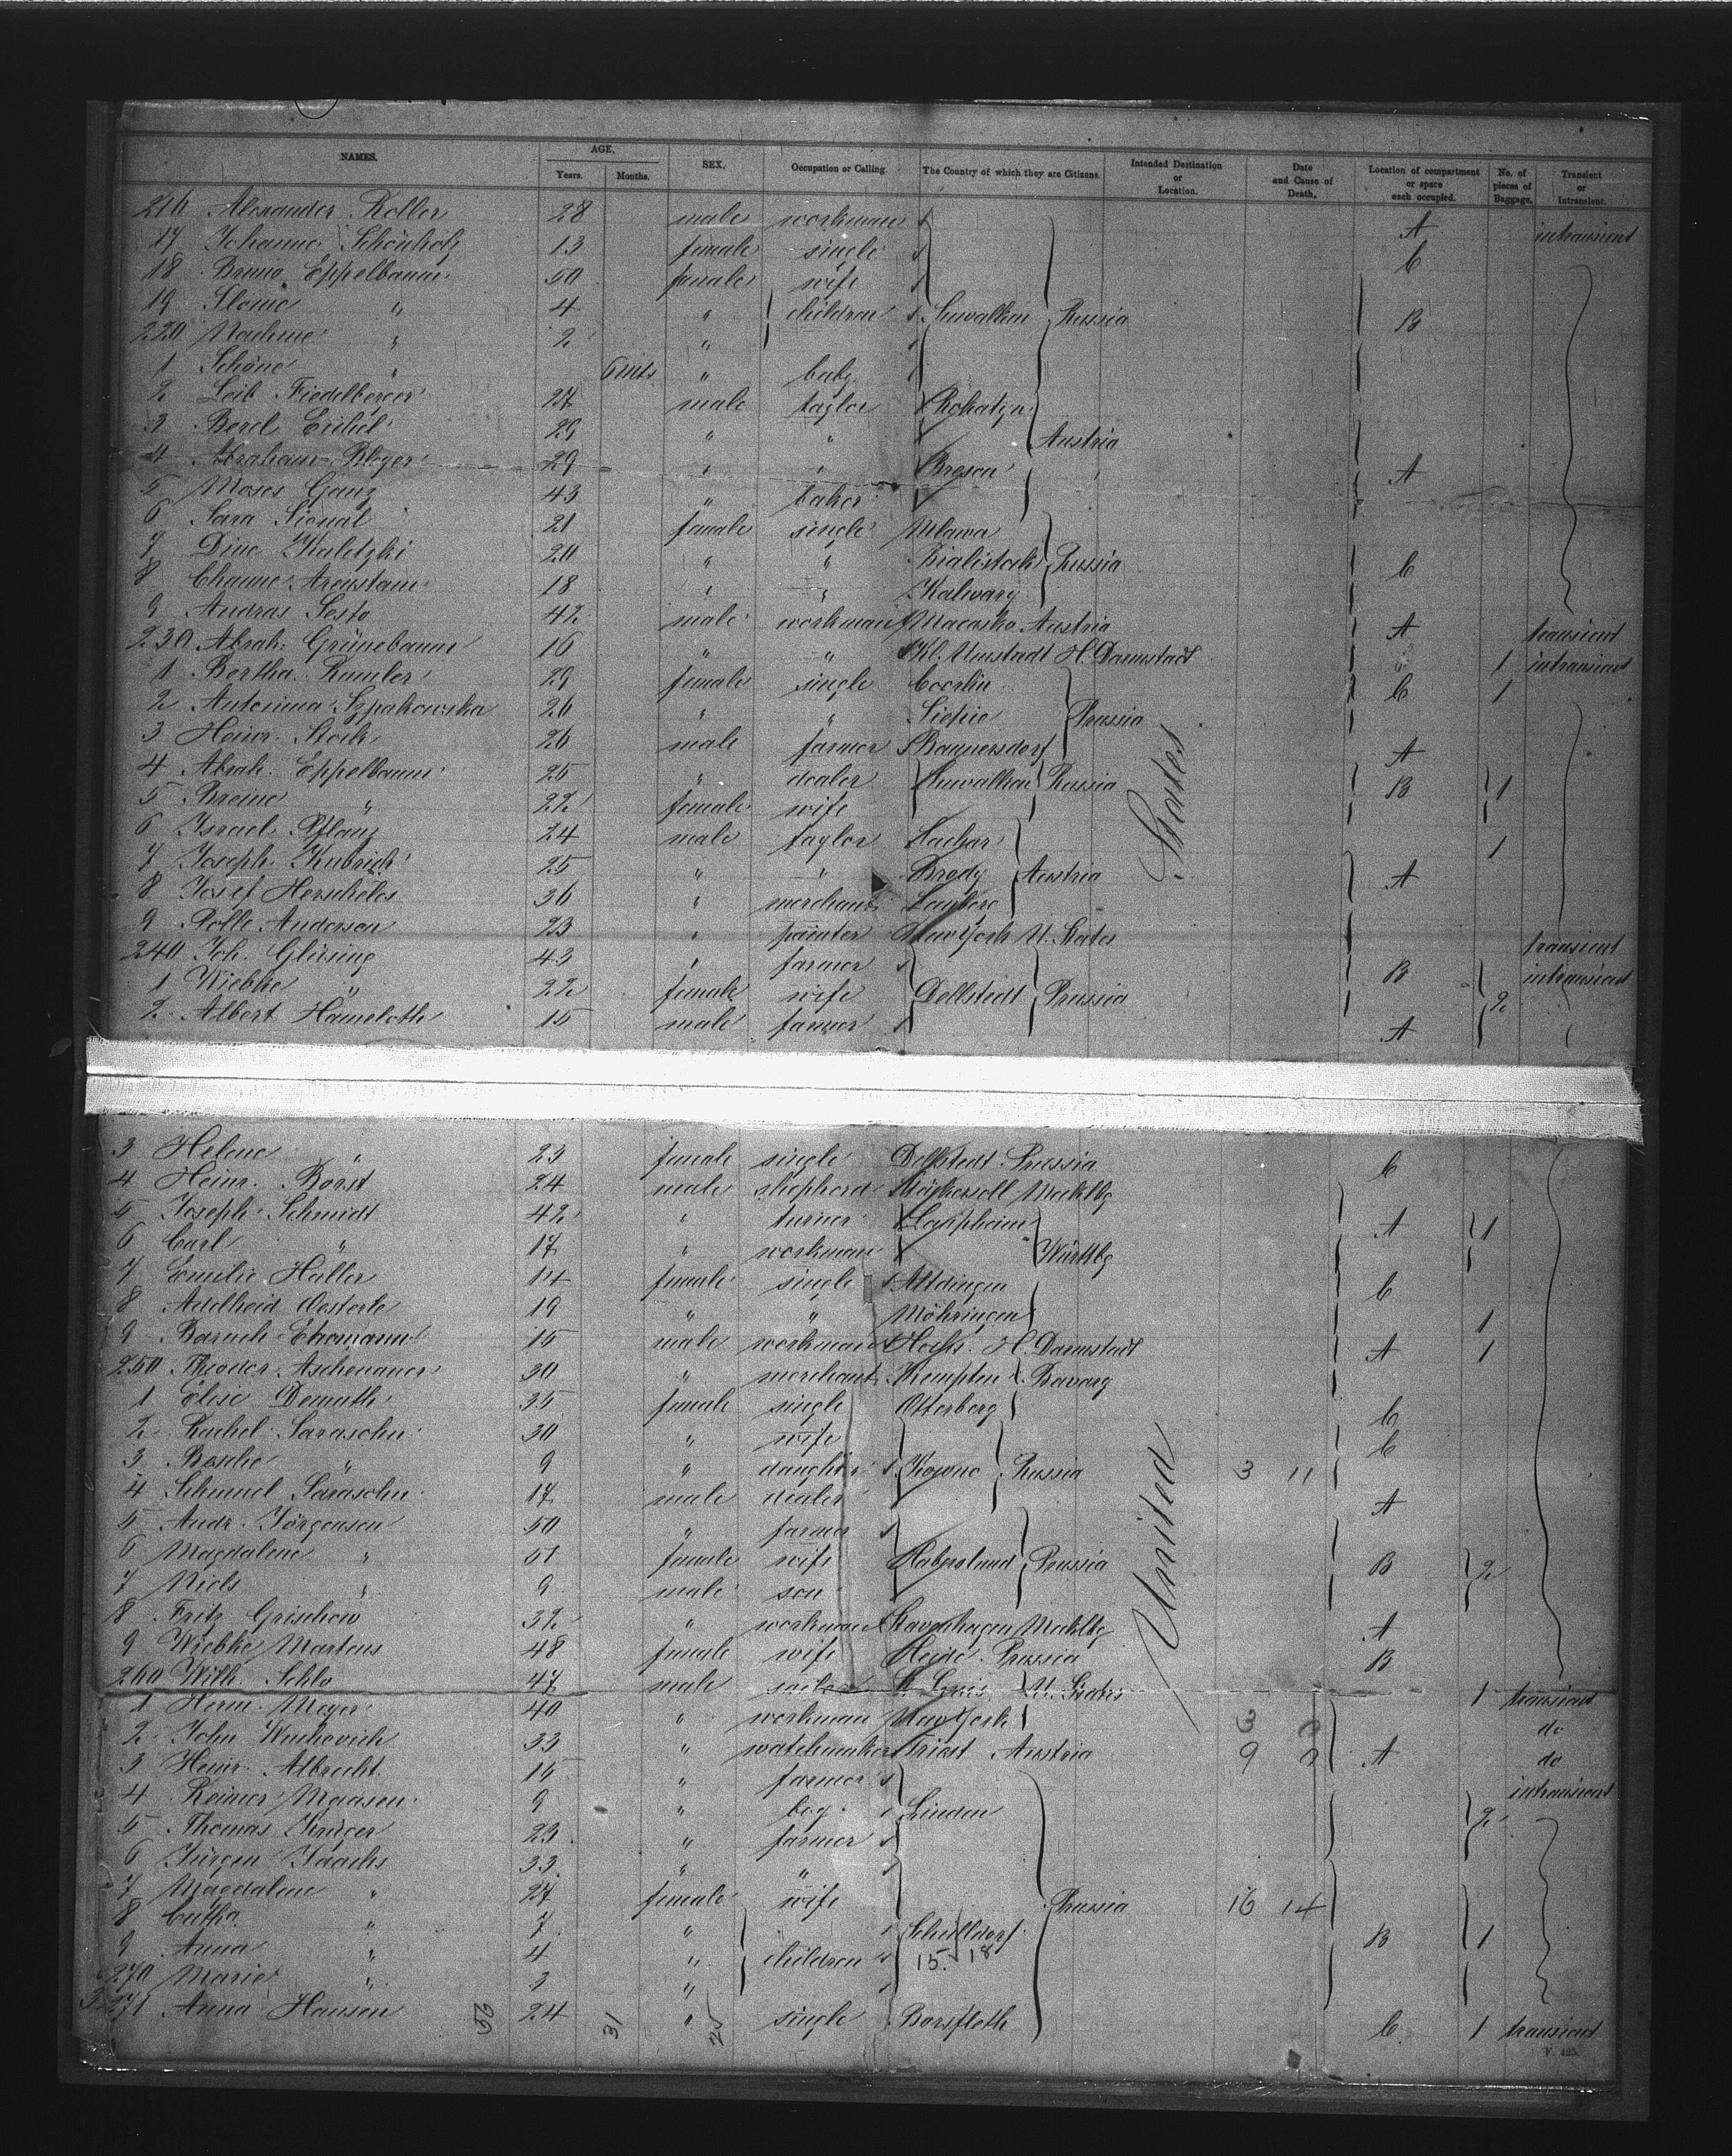 NAMES. AGE. Years. Months. SEX. Occupation or Calling. The Country of which they are Citizens. Intended Destination or Location. Date and Cause of Death. Location of compartment or space each occupied. No. of pieces of Baggage. Transient or Intransient.
216 Alexander Roller 28 male workman A intransient
17 Johanne Schönholz 13 female single C
18 Eppelbaum 50 female wife
19 " 4 " children Suwalken Russia B
220 " 2 "
1 Schöne " 6 mts " baby
2 Leib Fiedelberger 27 male taylor Rohatyn
3 Berl Eichel 29 " " Austria
4 Abraham 29 " " A
5 Moses Ganz 43 " baker
6 Sara 21 female single Mlawa
7 Dine Kaletzki 20 " " Bialistock Russia C
8 Arenstam 18 " " Kalwary
9 Andras 42 male workman Austria A transient
230 Abrah. Grünebaum 16 " " Kl. Umstadt H. Darmstadt " 1 intransient
1 Bertha 29 female single C 1
2 Szpakowska 26 " " Prussia
3 Heinr. 26 male farmer A
4 Abrah. Eppelbaum 25 " dealer Suwalken Russia B 1
5 Breine " 22 female wife
6 Israel Pflanz 24 male taylor 1
7 Joseph Kubrich 25 " " Brody Austria A
8 Josef Herscheles 36 " merchant Lemberg
9 Rolle Anderson 23 " painter New York U. States transient
240 Joh. Glüsing 43 " farmer B intransient
1 Wiebke " 22 female wife Dellstedt Prussia 2
2 Albert Hameloth 15 male farmer A
3 Helene " 23 female single Dellstedt Prussia C
4 Heinr. Borst 24 male shepherd Meklbg
5 Joseph Schmidt 42 " turner Laupheim A 1
6 Carl " 17 " workman Württbg
7 Emilie Haller 14 female single Aldingen C
8 Adelheid Oesterle 19 " " Möhringen 1
9 Baruch 15 male workman H. Darmstadt A 1
250 Theodor Aschenauer 30 " merchant Kempten Bavary
1 Elise Demuth 35 female single Otterberg C
2 Rachel Sarasohn 30 " wife C
3 " 9 " daughter Kowno Russia 3 11
4 Schmul Sarasohn 17 male dealer A
5 Andr. Jörgensen 50 " farmer
6 Magdalene " 51 female wife Prussia B 2
7 Niels " 9 male son
8 Fritz Grischow 32 " workman Stavenhagen Meklbg A
9 Wiebke Martens 48 female wife Heide Prussia B
260 Wilh. 47 male sailor St. Louis U. States 1 transient
1 Herm. Meyer 40 " workman New York 3 do
2 John 33 " watchmaker Triest Austria 9 A do
3 Heinr. Albrecht 15 " farmer intransient
4 Reimer Maasen 9 " boy Linden 2
5 Thomas Krüger 23 " farmer
6 Jürgen 33 " "
7 Magdalene " 27 female wife Prussia 16 14
8 " 7 " B 1
9 Anna " 4 " children 15. 18
270 Marie " 3 "
271 Anna Hansen 24 " single Borsfleth C 1 transient
United States
31
25
F. 425.